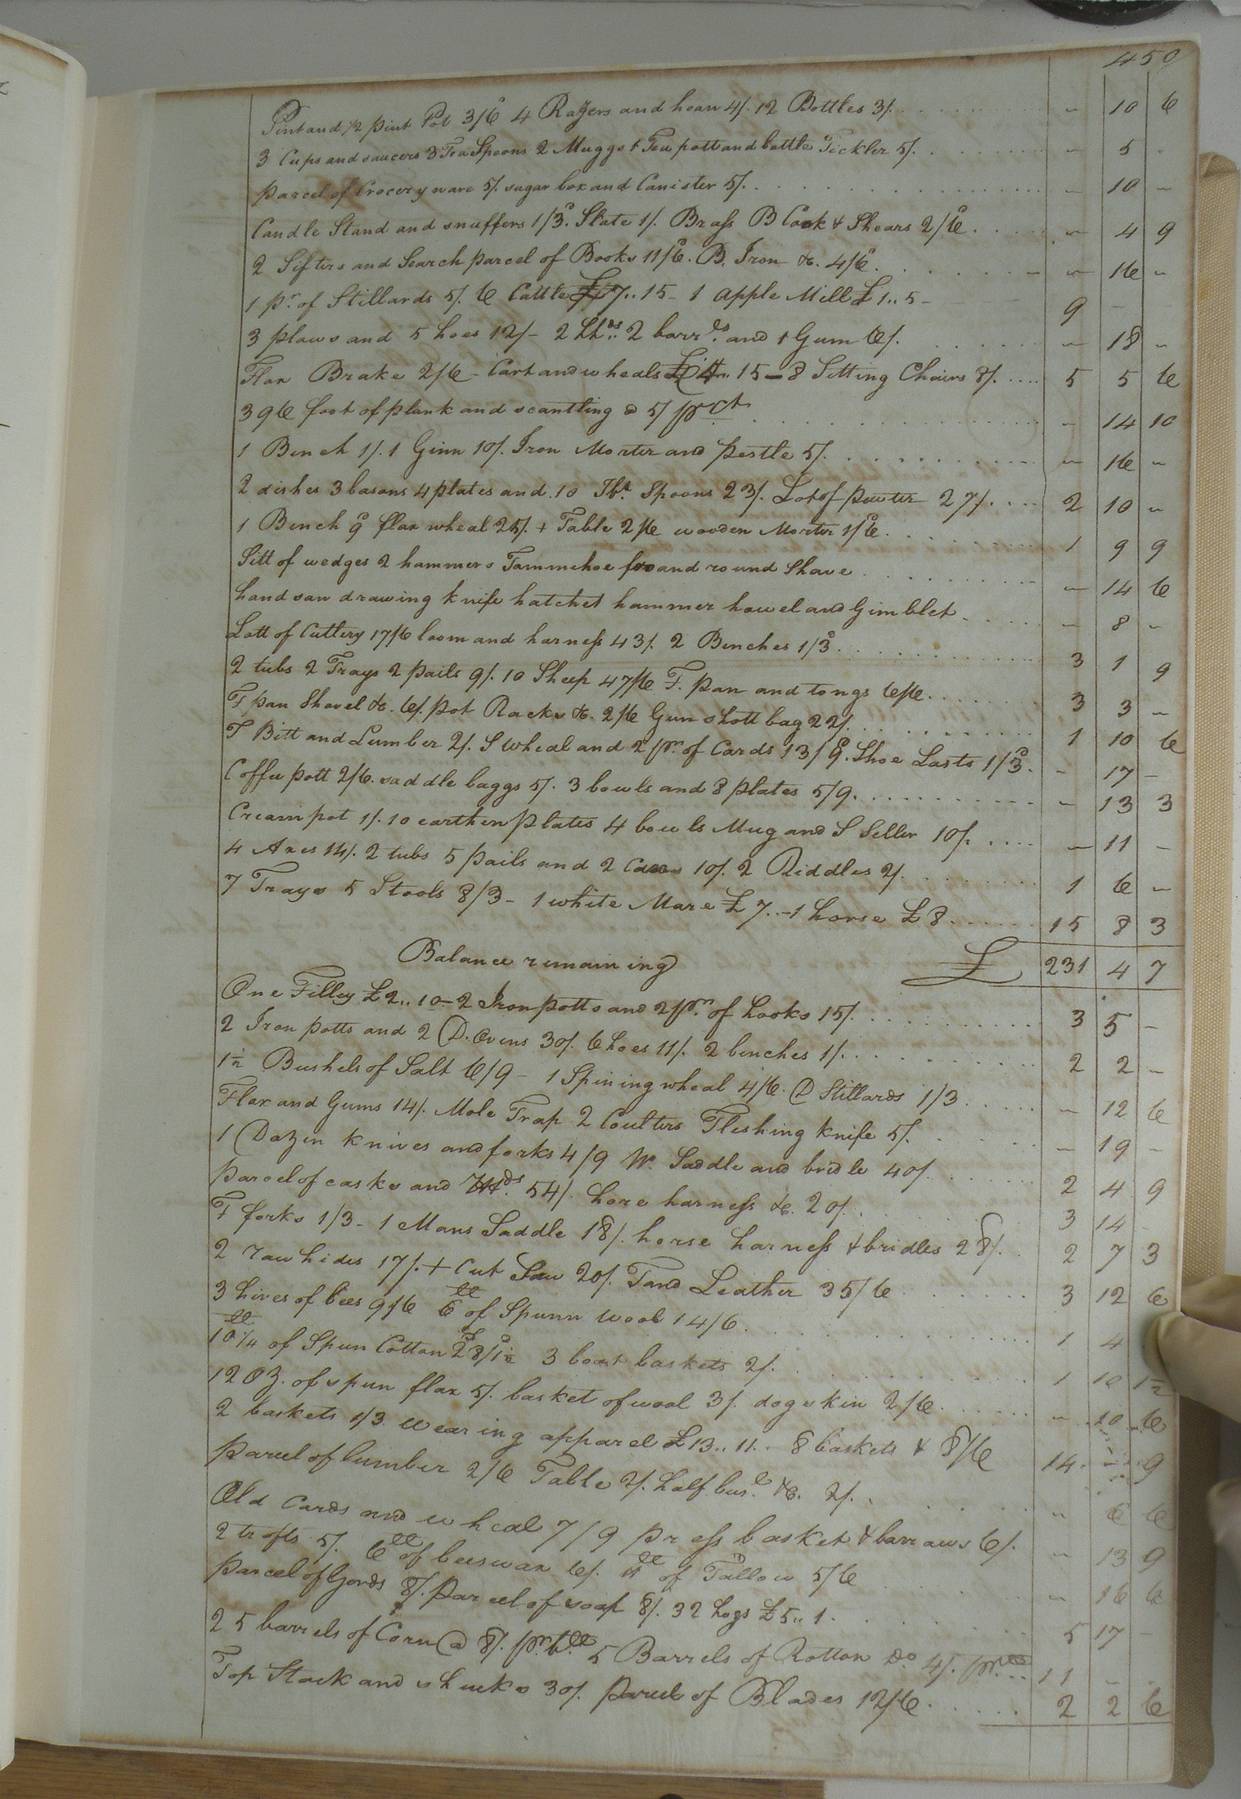 450
Pint and 1/2 pint Pot 3/6 4 Razers and hoan 4/. 12 Bottles 3/. - 10 6
3 Cups and saucers 3 Tea Spoons 2 Muggs 1 Tea pott and bottle Tickler 5/. - 5 -
parcel of Crocery ware 5/ sugar box and Canister 5/. - 10 -
Candle Stand and snuffers 1/3. Slate 1/. Brass B Cock & Shears 2/6. - 4 9
2 Sifters and Search parcel of Books 11/6. B. Iron &c. 4/6. - 16 -
1 pr. of Stillards 5/. 6 Cattle £7..15- 1 apple Mill £1..5- 9 - -
3 plaws and 5 hoes 12/- 2 hhds. 2 barrls. and 1 Gum 6/. - 18 -
Flax Brake 2/6 - Cart and wheals £4.. 15 - 8 Sitting Chairs 8/. 5 5 6
396 foot of plank and scantling @ 5/ pr ct - 14 10
1 Bench 1/. 1 Ginn 10/. Iron Morter and pestle 5/. - 16 -
2 dishes 3 basons 4 plates and 10 Tbl. Spoons 23/. Lot of pewter 27/. 2 10 -
1 Bench 9 flax wheal 25/. + Table 2/6 wooden Morter 1/6. 1 9 9
Sitt of wedges 2 hammers Tammehoe fro and round Shave - 14 6
hand saw drawing knife hatchet hammer howel and Gimblet - 8 -
Lott of Cuttery 17/6 loom and harness 43/. 2 Benches 1/3 3 1 9
2 tubs 2 Trays 2 pails 9/. 10 Sheep 47/6 F. pan and tongs 6/6. 3 3 -
F pan Shovel &c. 6/. pot Racks &c. 2/6 Gun shott bag 22/. 1 10 6
T Bitt and Lumber 2/. S wheal and 2 pr. of Cards 13/9. Shoe Lasts 1/3. - 17 -
Coffee pott 2/6. saddle baggs 5/. 3 bowls and 8 plates 5/9. - 13 3
Cream pot 1/. 10 earthen plates 4 bowls Mug and S Seller 10/. - 11 -
4 Axes 14/. 2 tubs 5 pails and 2 Cans 10/. 2 Riddles 2/. 1 6 -
7 Trays 5 Stools 8/3 - 1 white Mare £7..-1 horse £8 15 8 3
Balance remaining £ 231 4 7
One Filley £2.. 10 - 2 Iron potts and 2 pr. of hooks 15/. 3 5 -
2 Iron potts and 2 D. Ovens 30/. 6 hoes 11/. 2 benches 1/. 2 2 -
1 1/2 Bushels of Salt 6/9 - 1 Spining wheal 4/6. @ Stillards 1/3 - 12 6
Flax and Gums 14/. Mole Trap 2 Coulters Fleshing knife 5/. - 19 -
1 Dozin knives and forks 4/9 Wn. Saddle and bridle 40/. 2 4 9
parcel of casks and hhds. 54/. hore harness &c. 20/. 3 14 -
F forks 1/3 - 1 Mans Saddle 18/. horse harness & bridles 28/. 2 7 3
2 raw hides 17/. + Cut Saw 20/. Tand Leather 35/6 3 12 6
3 hives of bees 9/6 6 ll of Spunn wool 14/6. 1 4
10 1/4 ll of Spun Cotton @ 28/1 1/2 3 boat baskets 2/. 1 10 1 1/2
12 oz. of spun flax 5/. basket of wool 3/. dog skin 2/6. - 10 6
2 baskets 1/3 wearing apparel £13.. 11.. 8 baskets & 8/6 14 - 9
parcel of lumber 2/6 Table 2/. half busl. &c. 2/. - 6 6
Old Cards and wheal 7/9 press basket & barraws 6/. - 13 9
2 trofts 5/. 6 ll of beeswax 6/. 11 ll of Tallow 5/6 - 16 6
parcel of Gords 8/. parcel of soap 8/. 32 hogs £5.. 1. 5 17 -
25 barrels of Corn @ 8/. pr. bll 5 Barrels of Rotton do 4/. pr. 11 - -
Top Stack and shucks 30/. parcel of Blades 12/6. 2 2 6